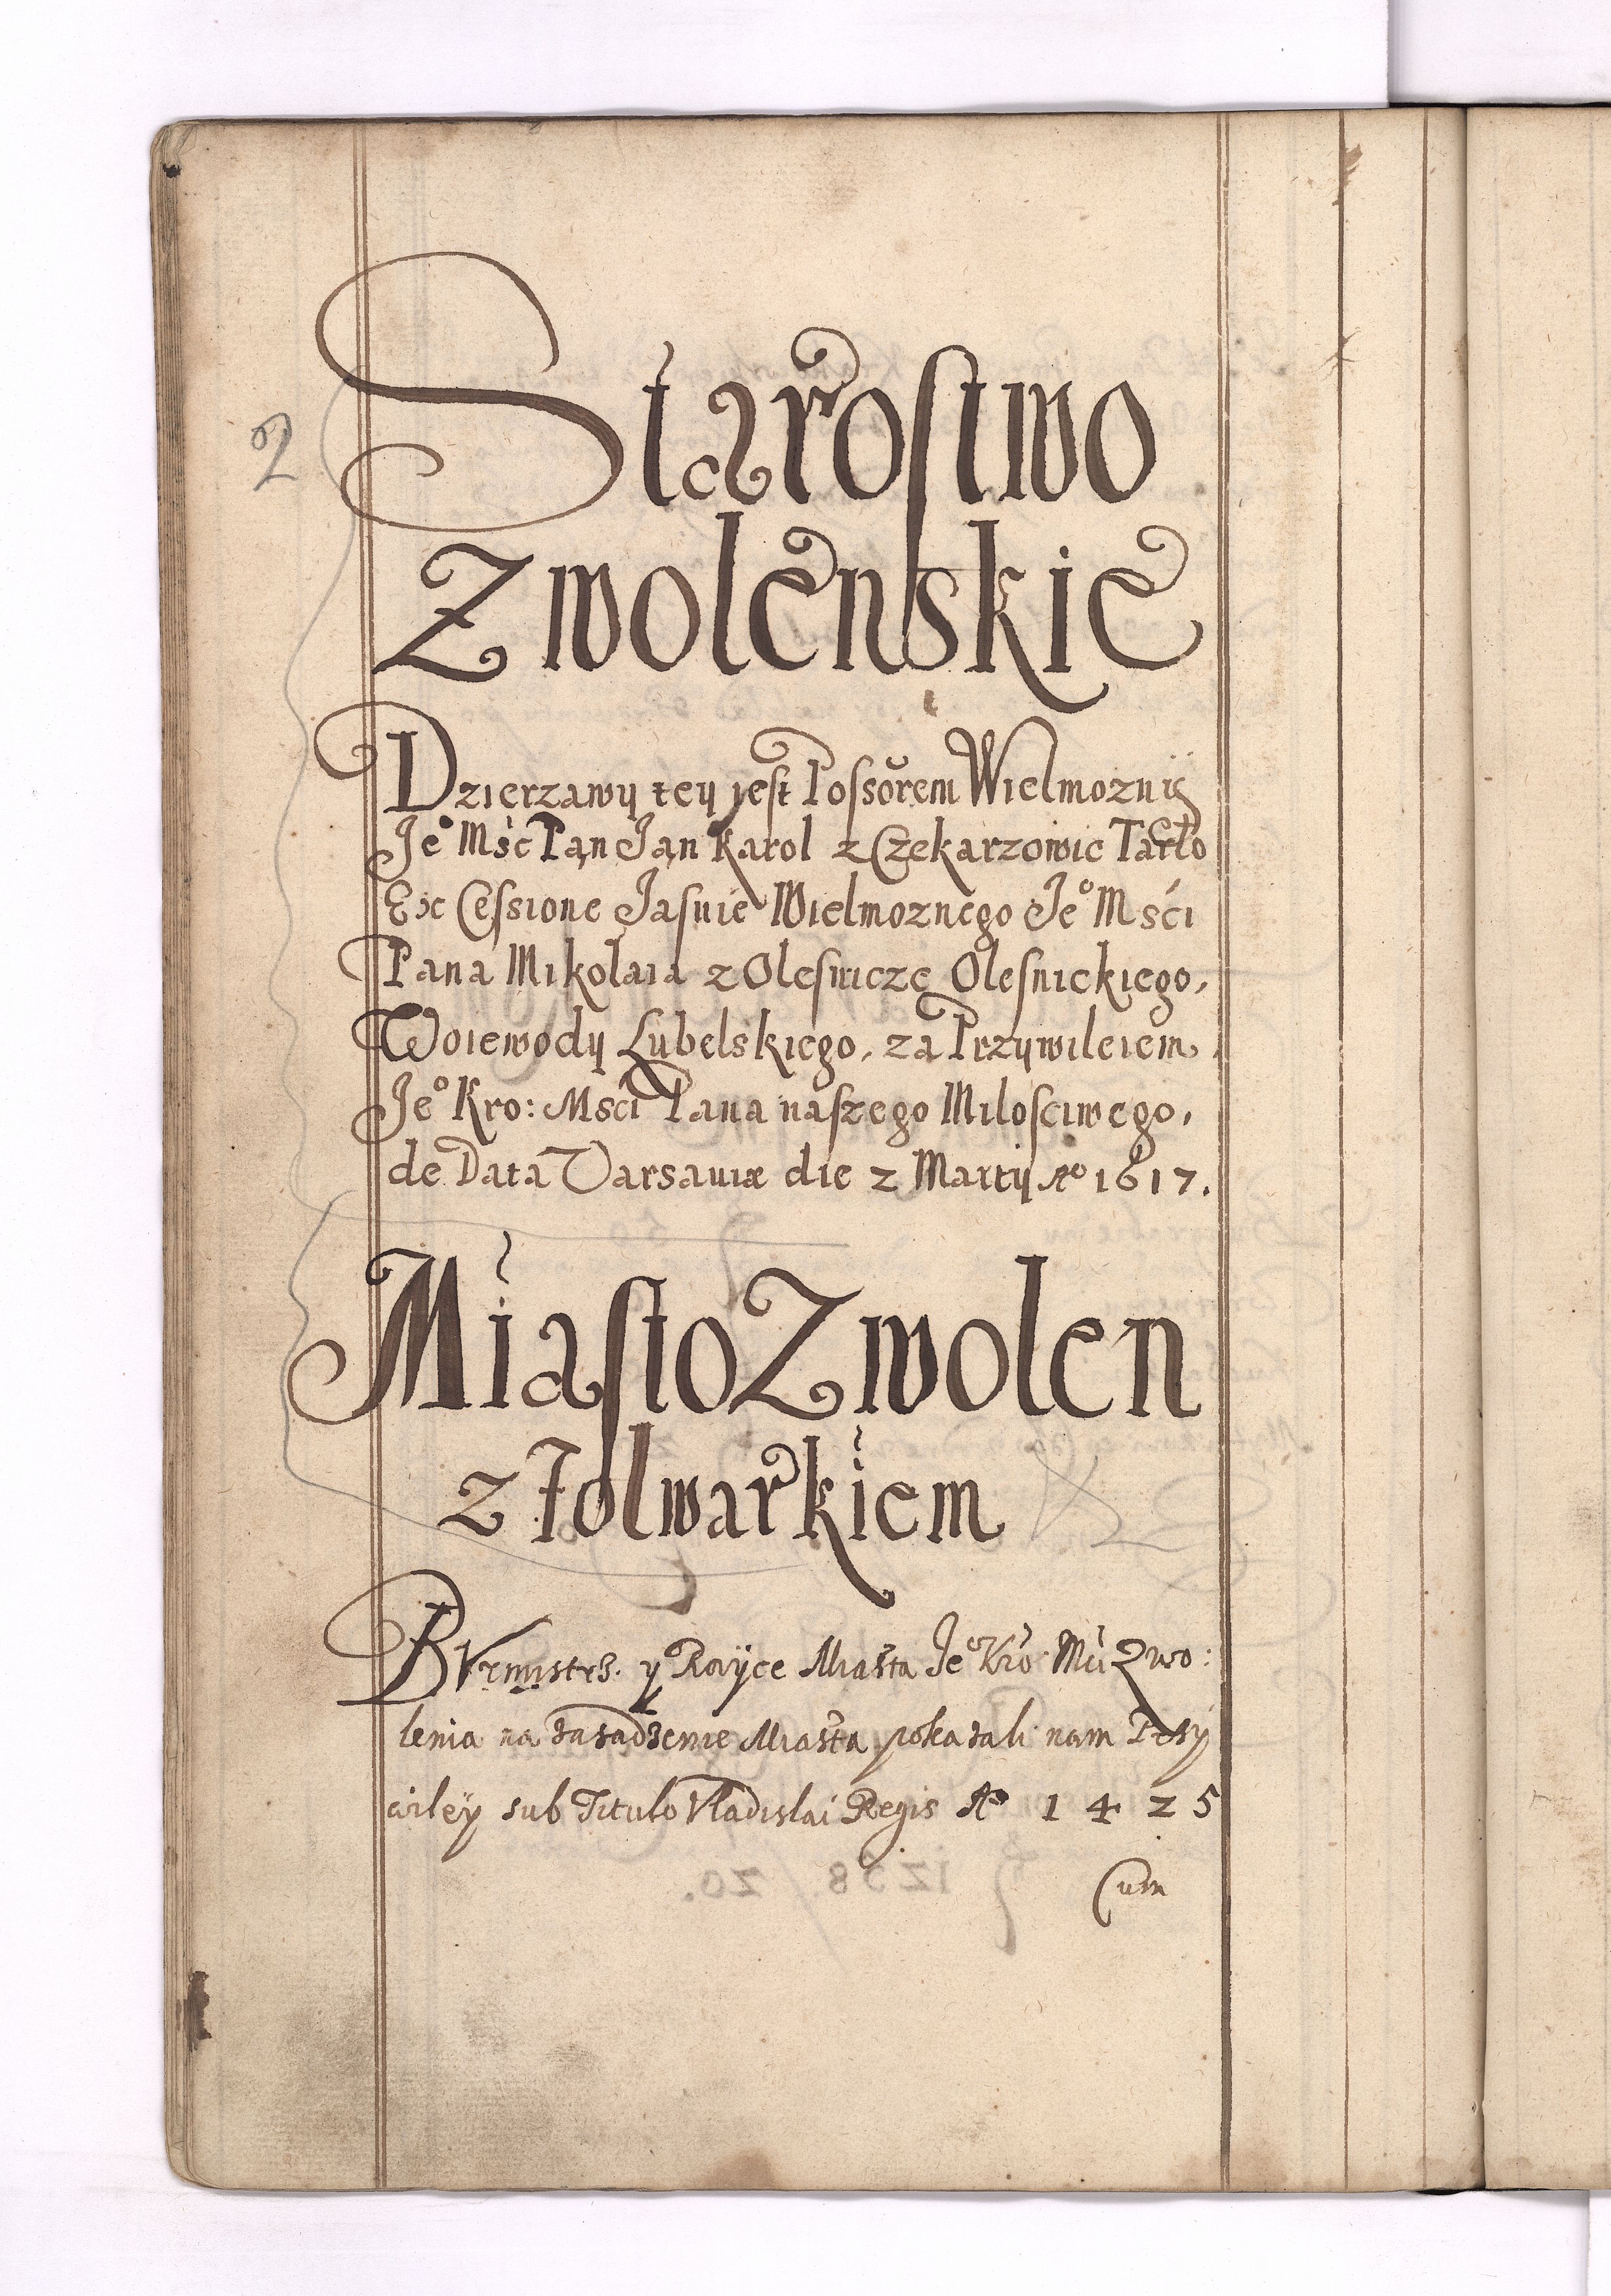 2
Starostwo
Zwolenskie
Dzierzawy tey jest Possorem Wielmozny
Je° Msć Pan Jan Karol z Czekarzowic Tarło
Ex Cessione Jasnie Wielmoznego Je° Msći
Pana Mikolaia z Olesnicze Olesnickiego,
Woiewody Lubelskiego, za Przywileiem
Je° Kro: Msći Pana naszego Milosciwego,
de Data Varsauiæ die 2 Martij A° 1617.
Miasto Zwolen
z Folwarkiem
Burmistrz. y Rayce Miasta Je° Kro: Mći Zwo:
lenia na zasadzenie Miasta pokazali nam Przy
wiley sub Titulo Vladislai Regis A° 1425
Cum